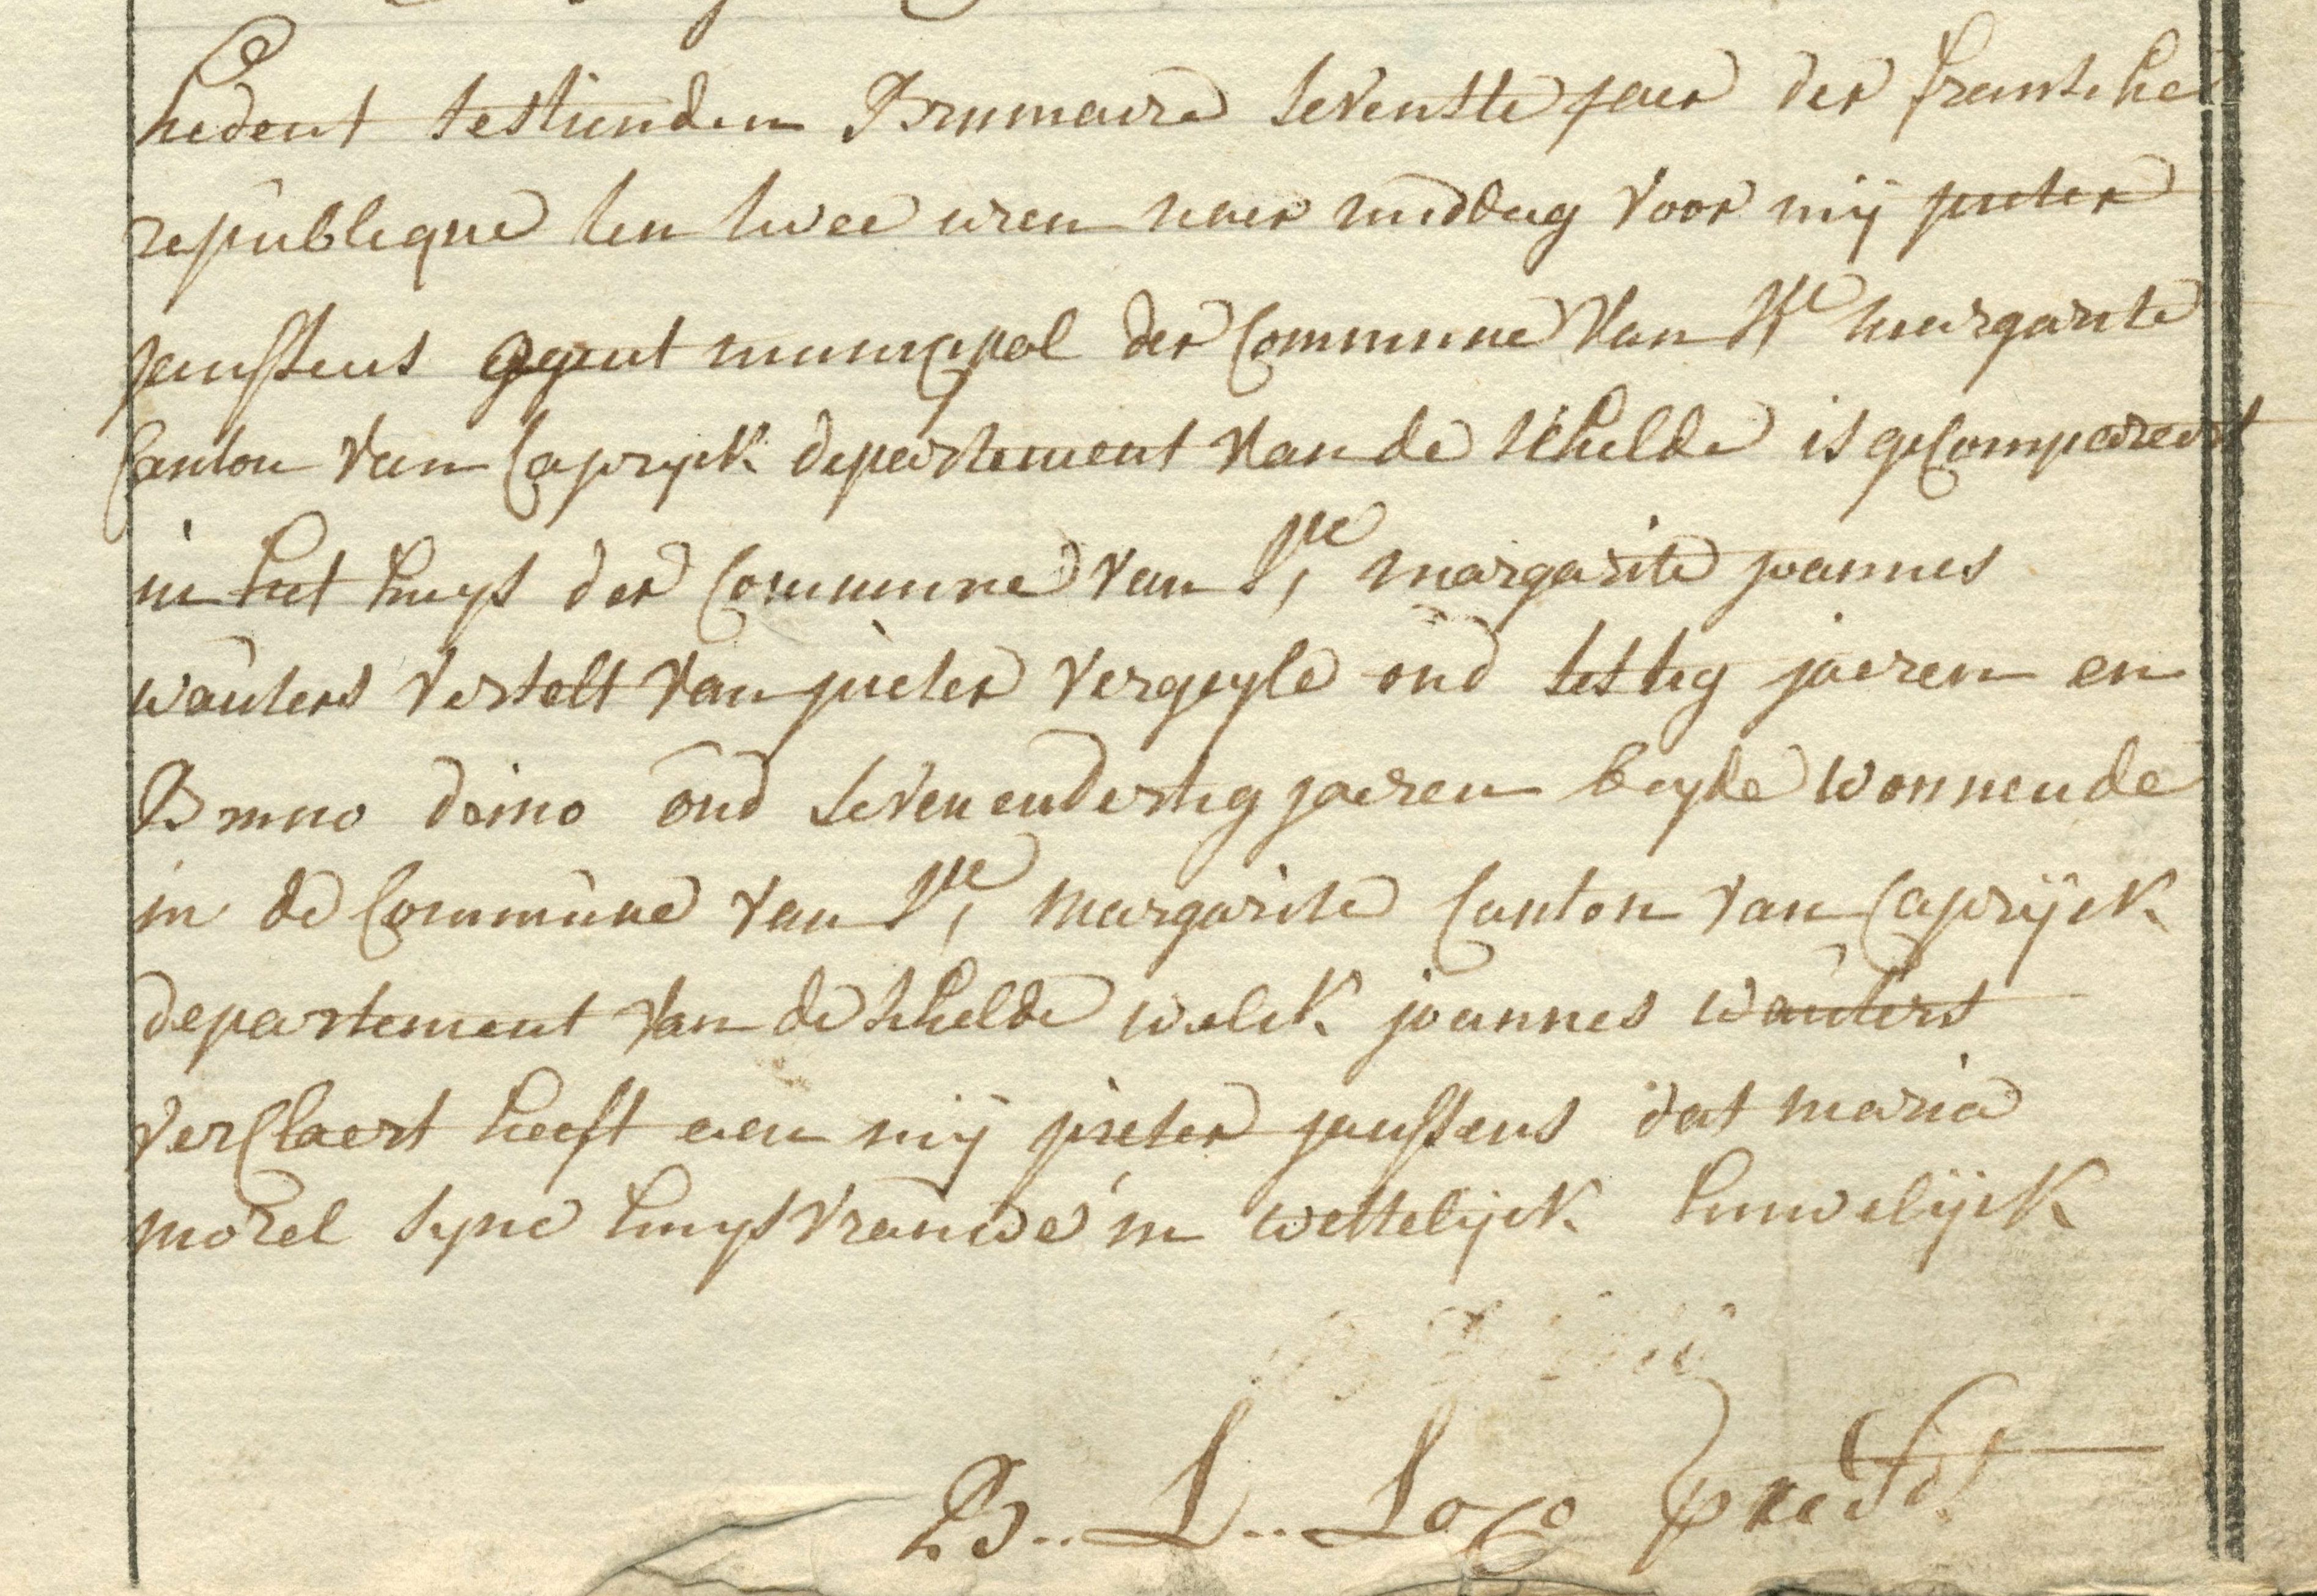 hedent sesthienden Brumaire seventste jaer der fransche
republique ten twee uren naer middag voor mij pieter
janssens agent municipal der Commune van Ste margarite
Canton van Capryck departement van de schelde is gecompareert
in het huys der Commune van Ste margarite joannes
wauters verselt van pieter vergeyle oud sestig jaeren en
Bruno doino oud sevenendertig jaeren beyde wonnende
in de Commune van Ste margarite Canton van Caprijck
departement van de schelde welck joannes wauters
verClaert heeft aen mij pieter janssens dat maria
morel syne huysvrauwe in wettelijck huwelijck
B.. L.. Loco presdt